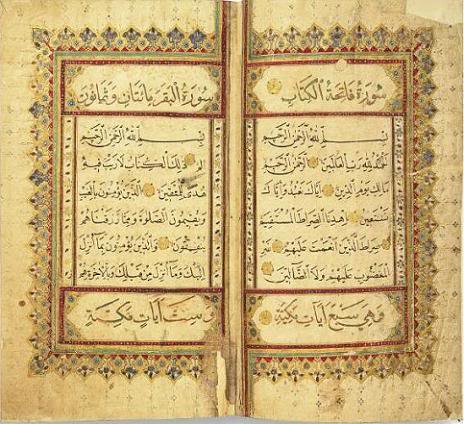 سورة فاتحة الكتاب
بسم الله الرحمن الرحيم
الحمد لله رب العالمين الرحمن الرحيم
مالك يوم الدين اياك نعبد واياك
نستعين اهدنا الصراط المستقيم
صراط الذين انعمت عليهم غير
المغضوب عليهم ولا الضالين
وهي سبع آيات مكية
سورة البقرة مائتان وثمانون
بسم الله الرحمن الرحيم
الم ذلك الكتاب لا ريب فيه
هدى للمتقين الذين يؤمنون بالغيب
ويقيمون الصلوة ومما رزقناهم
ينفقون والذين يؤمنون بما انزل
اليك وما انزل من قبلك وبالآخرة هم
وست آيات مكية